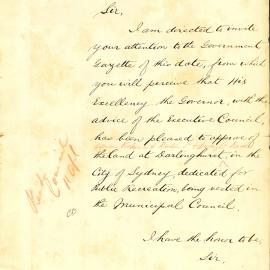 Sir,
I am directed to invite
your attention to the Government
Gazette of this date, from which
you will perceive that His
Excellency the Governor, with the
advice of the Executive Council,
has been pleased to approve of
the land at Darlinghurst, in the
City of Sydney, dedicated for
Public Recreation, being vested in
the Municipal Council.
I have the honor to be,
Sir,